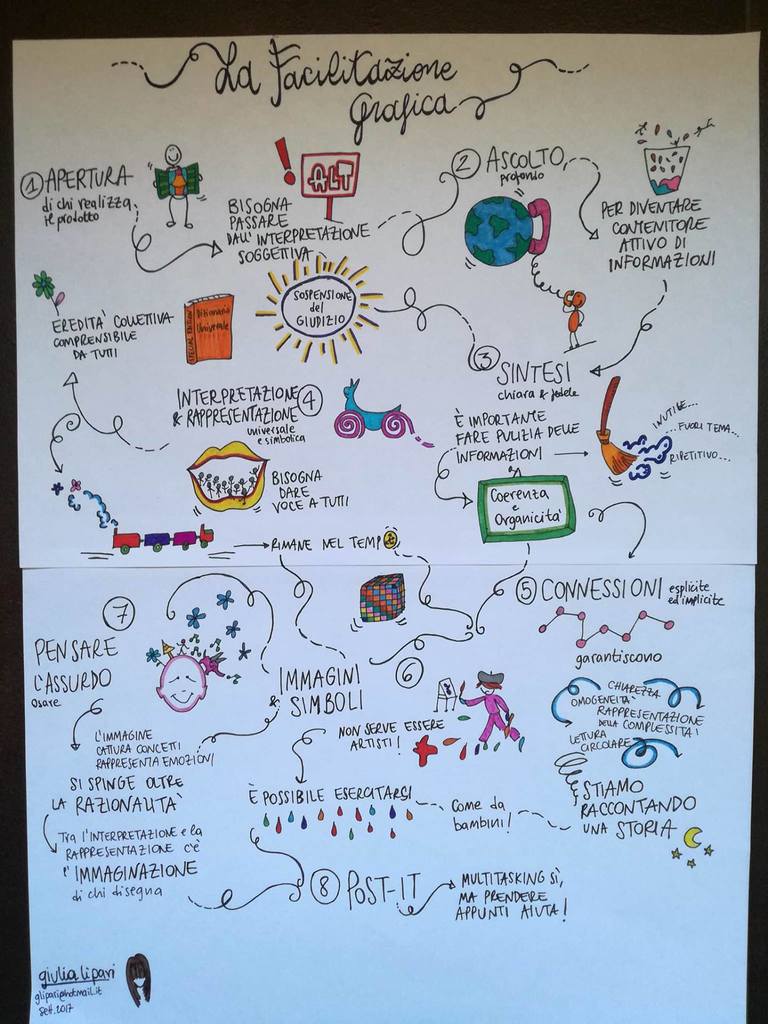 La Facilitazione
grafica
① APERTURA
di chi realizza
il prodotto
BISOGNA
PASSARE
DALL'INTERPRETAZIONE
SOGGETTIVA
ALT
② ASCOLTO
profondo
PER DIVENTARE
CONTENITORE
ATTIVO DI
INFORMAZIONI
SOSPENSIONE
del
GIUDIZIO
③ SINTESI
chiara & fedele
È IMPORTANTE
FARE PULIZIA DELLE
INFORMAZIONI
INUTILE...
...FUORI TEMA...
RIPETITIVO...
Coerenza
e
Organicità
INTERPRETAZIONE ④
& RAPPRESENTAZIONE
universale
e simbolica
BISOGNA
DARE
VOCE A TUTTI
EREDITÀ COLLETTIVA
COMPRENSIBILE
DA TUTTI
SPECIAL EDITION
Dizionario
Universale
RIMANE NEL TEMPO
⑤ CONNESSIONI esplicite
ed implicite
garantiscono
CHIAREZZA
OMOGENEITÀ
RAPPRESENTAZIONE
DELLA COMPLESSITÀ
LETTURA
CIRCOLARE
STIAMO
RACCONTANDO
UNA STORIA
⑥
IMMAGINI
&
SIMBOLI
NON SERVE ESSERE
ARTISTI!
È POSSIBILE ESERCITARSI
Come da
bambini!
⑦
PENSARE
L'ASSURDO
osare
L'IMMAGINE
CATTURA CONCETTI
RAPPRESENTA EMOZIONI
SI SPINGE OLTRE
LA RAZIONALITÀ
TRA l'INTERPRETAZIONE e la
RAPPRESENTAZIONE C'È
l'IMMAGINAZIONE
di chi disegna
⑧ POST-IT
MULTITASKING SÌ,
MA PRENDERE
APPUNTI AIUTA!
giulia lipari
glipari@hotmail.it
sett. 2017